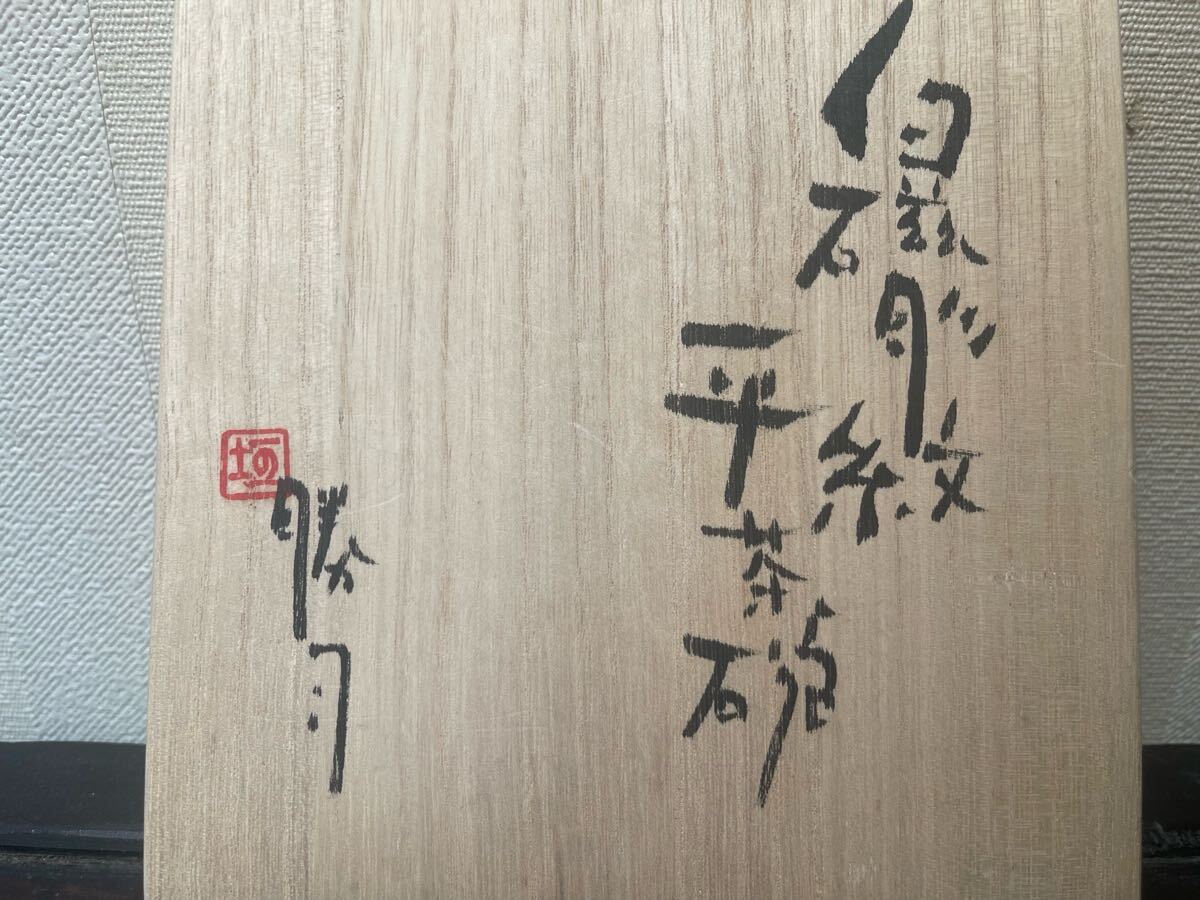 白磁彫紋
平茶碗
勝月